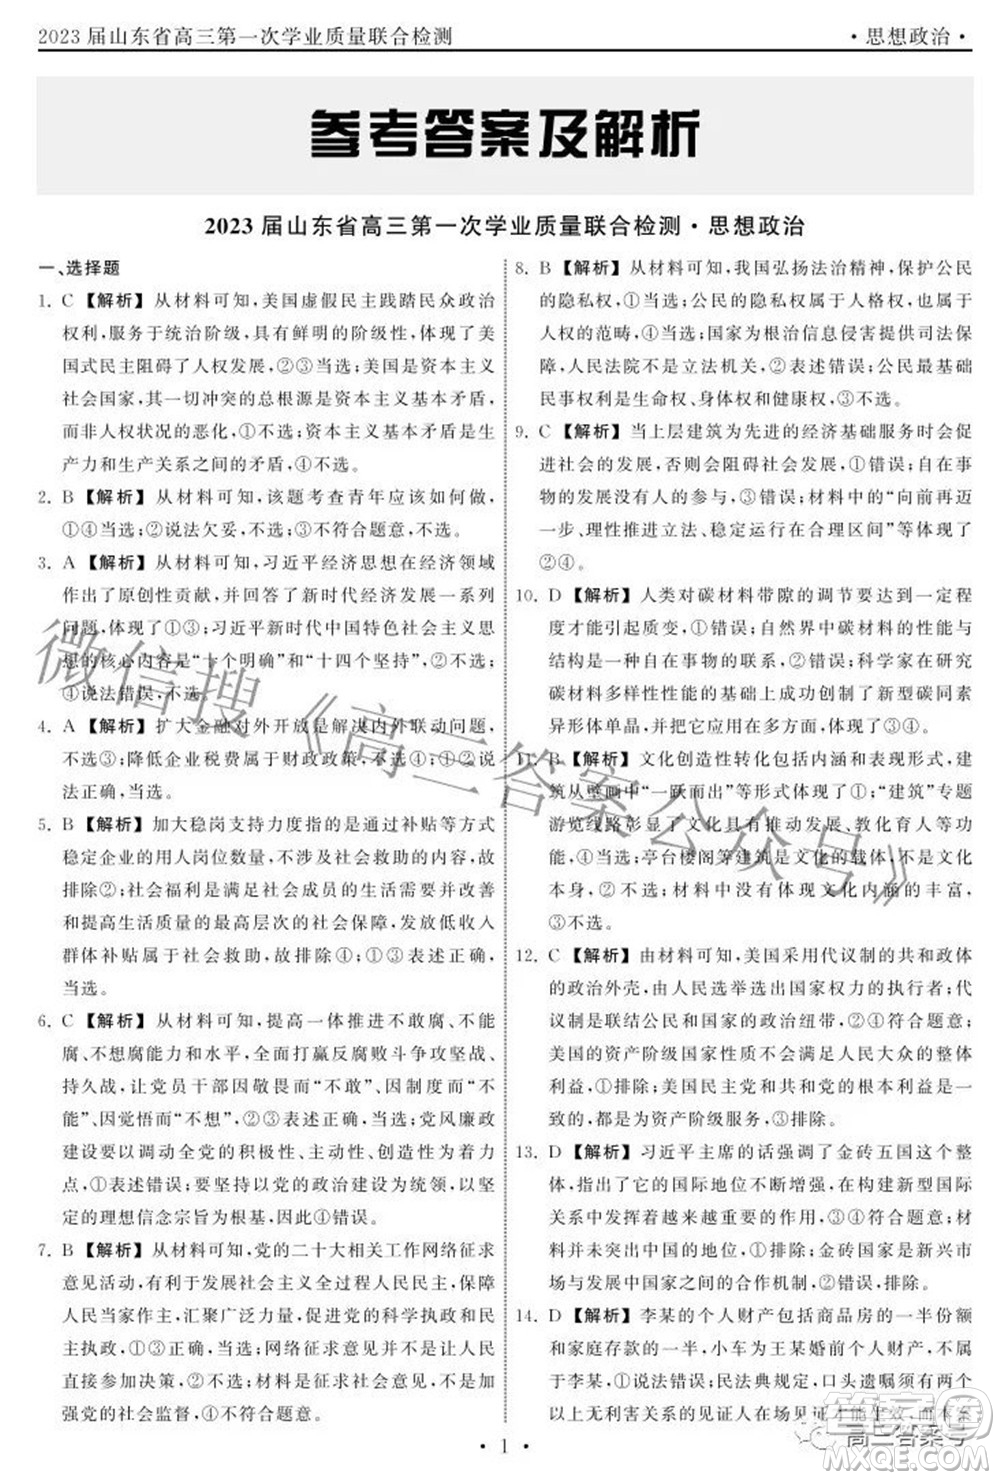 2023 届山东省高三第一次学业质量联合检测
·思想政治·
参考答案及解析
2023 届山东省高三第一次学业质量联合检测·思想政治
一、选择题
1. C 【解析】从材料可知，美国虚假民主践踏民众政治
权利，服务于统治阶级，具有鲜明的阶级性，体现了美
国式民主阻碍了人权发展，②③当选；美国是资本主义
社会国家，其一切冲突的总根源是资本主义基本矛盾，
而非人权状况的恶化，①不选；资本主义基本矛盾是生
产力和生产关系之间的矛盾，④不选。
2. B 【解析】从材料可知，该题考查青年应该如何做，
①④当选；②说法欠妥，不选；③不符合题意，不选。
3. A 【解析】从材料可知，习近平经济思想在经济领域
作出了原创性贡献，并回答了新时代经济发展一系列
问题，体现了①③；习近平新时代中国特色社会主义思
想的核心内容是“十个明确”和“十四个坚持”，②不选；
④说法错误，不选。
4. A 【解析】扩大金融对外开放是解决内外联动问题，
不选③；降低企业税费属于财政政策，不选④；①②正
确，当选。
5. B 【解析】加大稳岗支持力度指的是通过补贴等方式
稳定企业的用人岗位数量，不涉及社会救助的内容，故
排除②；社会福利是满足社会成员的生活需要并改善
和提高生活质量的最高层次的社会保障，发放低收入
群体补贴不属于社会福利，故排除④；①③正确，故
当选。
6. C 【解析】从材料可知，提高一体推进不敢腐、不能
腐、不想腐能力和水平，全面打赢反腐败斗争攻坚战、
持久战，让党员干部因敬畏而“不敢”、因制度而“不
能”、因觉悟而“不想”，②③表述正确，当选；党风廉政
建设需要发挥全体党员的积极性、主动性、创造性，而
非“关键在发挥党组织先锋模范作用”，这是对党员的
要求，①表述错误；要坚持以党的政治建设为统领，以
坚定的理想信念宗旨为根基，因此④错误。
7. B 【解析】从材料可知，党的二十大相关工作网络征求
意见活动，有利于发展社会主义全过程人民民主，保障
人民当家作主，汇聚广泛力量，提高党的科学执政与民
主执政水平，①③当选；网络征求意见并非人民群众直
接参加决策，②不选；材料是征求社会意见，不是人民
群众的社会监督，④不符合题意。
8. B 【解析】从材料可知，我国弘扬法治精神，保护公民
的隐私权，①当选；公民的隐私权属于人格权，也属于
人权的范畴，④当选；国家为根治信息侵害提供司法保
障，人民法院不是立法机关，②表述错误；公民最基础
民事权利是生命权、身体权和健康权，③不选。
9. C 【解析】当上层建筑为先进的经济基础服务时会促
进社会的发展，否则会阻碍社会的发展，①错误；任何
事物的发展都没有终点，③错误；材料中的“向前再迈
一步、理性推进立法、稳定运行在合理区间”等体现了
②④。
10. D 【解析】人类对碳材料带隙的调节要达到一定程
度才能引起质变，①错误；自然界中碳材料的性能与
结构是一种自在事物的联系，②错误；科学家在研究
碳材料多样性性能的基础上成功创制了新型碳同素
异形体单体，并把它应用在多方面，体现了③④。
11. B 【解析】文化创造性转化包括内涵和表现形式，建
筑从壁画中“一跃而出”体现了①；“建筑”专题
游览线路彰显了文化具有推动发展、教化育人等作
用，④当选；亭台楼阁等建筑是文化的载体，不是文化
本身，②不选；材料中没有体现文化内涵的丰富，
③不选。
12. C 【解析】由材料可知，美国采用代议制的共和政体
的政治外壳，由人民选举选出国家权力的执行者；代
议制是联结公民和国家的政治纽带，②④符合题意；
美国的资产阶级国家性质不会满足人民大众的整体
利益，①排除；美国民主党和共和党的根本利益是一
致的，都是为资产阶级服务，③排除。
13. D 【解析】习近平主席的话强调了金砖五国这样的
国家的国际地位不断增强，并在构建新型国际
关系中发挥着越来越重要的作用，③④符合题意；材
料并未突出中国的地位，①排除；金砖国家是新兴市
场与发展中国家之间的合作机制，②错误，排除。
14. D 【解析】李某的个人财产包括商品房的一半份额
和家庭存款的一半，小车为王某婚前个人财产，不属
于李某，①说法错误；民法典规定，口头遗嘱须有两个
以上无利害关系的见证人在场见证才能生效，而本案
· 1 ·
微信搜《高三答案公众号》
高三答案号